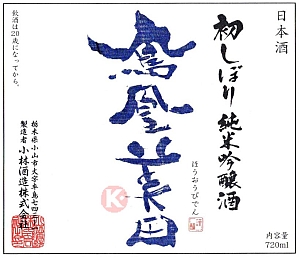 日本酒
初しぼり 純米吟醸酒
鳳凰美田
ほうおうびでん
飲酒は20歳になってから。
栃木県小山市大字卒島七四三ノ一
製造者 小林酒造株式会社
内容量
720ml
K